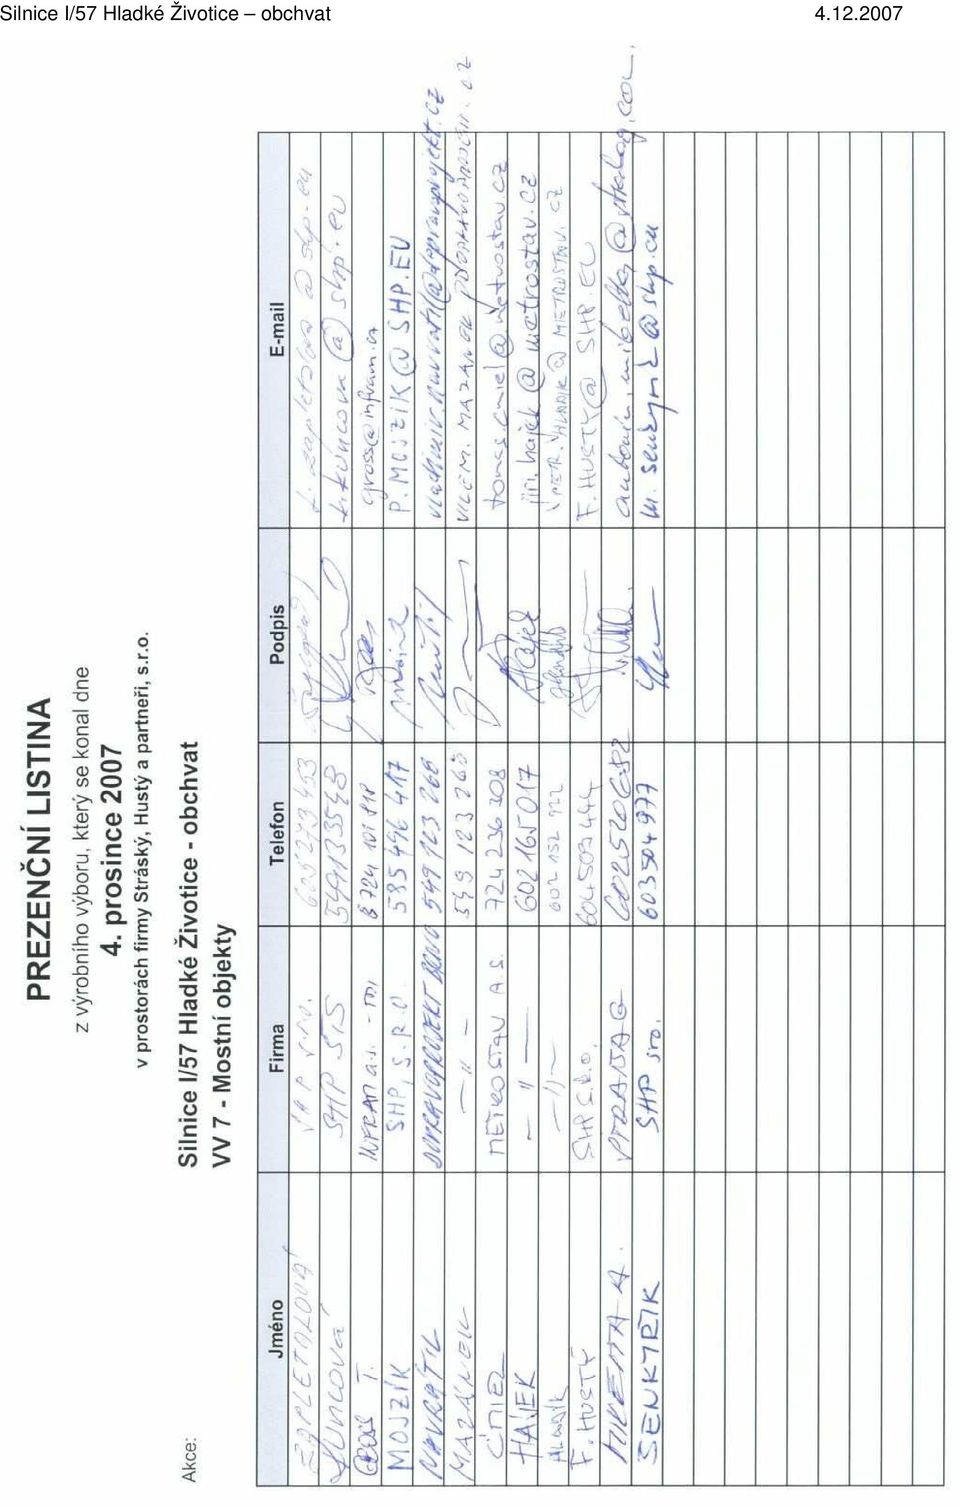 Silnice I/57 Hladké Životice – obchvat 4.12.2007
PREZENČNÍ LISTINA
z výrobního výboru, který se konal dne
4. prosince 2007
v prostorách firmy Stráský, Hustý a partneři, s.r.o.
Akce: Silnice I/57 Hladké Životice - obchvat
VV 7 - Mostní objekty
Jméno Firma Telefon Podpis E-mail
ZAPLETALOVÁ s.r.o. 605273453 @shp.eu
KUNCOVÁ SHP STS 549133548 kuncova@shp.eu
T. INFRAM a.s. - 724 101 gross@infram.cz
MOJZÍK SHP, S.R.O. 585 496 417 P.MOJZIK@SHP.EU
NAVRÁTIL DOPRAVOPROJEKT BRNO 549 123 260 vladimir.navratil@dopravoprojekt.cz
MAZÁNEK -"- 549 123 260 VILEM.MAZANEK
CMIEL METROSTAV A.S. 724 236 308 tomas.cmiel@metrostav.cz
HÁJEK -"- 602165017 jiri.hajek@metrostav.cz
HLADÍK -"- 602 152 PETR.HLADIK@METROSTAV.CZ
F. HUSTÝ SHP s.r.o. 604503444 F.HUSTY@SHP.EU
A. 602520682
SENKYŘÍK SHP sro. 603504977 m.senkyrik@shp.eu